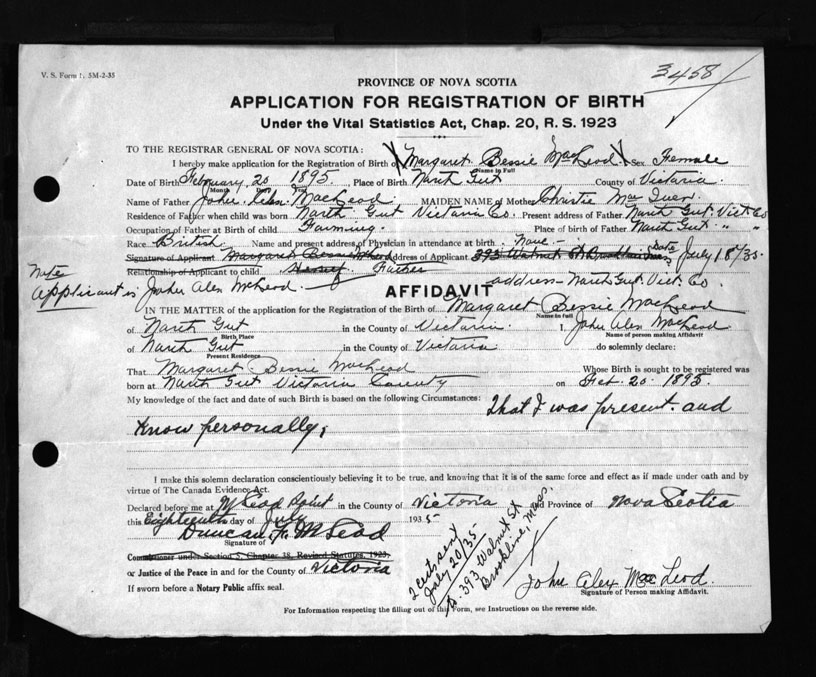 V. S. Form 5M-2-35
3458
PROVINCE OF NOVA SCOTIA
APPLICATION FOR REGISTRATION OF BIRTH
Under the Vital Statistics Act, Chap. 20, R. S. 1923
TO THE REGISTRAR GENERAL OF NOVA SCOTIA:
I hereby make application for the Registration of Birth of Margaret Bessie MacLeod Sex Female
Name in Full
Date of Birth February 20 1895. Place of Birth North Gut County of Victoria
Month Day
Name of Father John MacLeod MAIDEN NAME of Mother Christie Mac
Residence of Father when child was born North Gut Victoria Co. Present address of Father North Gut. Vict. Co
Occupation of Father at Birth of child Farming. Place of birth of Father North Gut " "
Race British Name and present address of Physician in attendance at birth. None -
Signature of Applicant Margaret Bessie Address of Applicant 393 Walnut St Brookline Mass Date July 18/35.
Relationship of Applicant to child Herself Father address - North Gut. Vict. Co.
Note
Applicant is John Alex McLeod.
AFFIDAVIT
IN THE MATTER of the application for the Registration of the Birth of Margaret Bessie MacLeod
Name in full
of North Gut in the County of Victoria I, John Alex MacLeod
Birth Place Name of person making Affidavit
of North Gut in the County of Victoria do solemnly declare:
Present Residence
That Margaret Bessie MacLeod Whose Birth is sought to be registered was
born at North Gut Victoria County on Feb. 20. 1895.
My knowledge of the fact and date of such Birth is based on the following Circumstances: That I was present and
Know personally,
I make this solemn declaration conscientiously believing it to be true, and knowing that it is of the same force and effect as if made under oath and by
virtue of The Canada Evidence Act.
Declared before me at McLeod Point in the County of Victoria and Province of Nova Scotia
this Eighteenth day of July 1935
Duncan McLeod
Signature of
Commissioner under Section 5, Chapter 38, Revised Statutes, 1923.
or Justice of the Peace in and for the County of Victoria
If sworn before a Notary Public affix seal.
2 certs sent
July 20/35
to 393 Walnut St
Brookline, Mass.
John Alex MacLeod.
Signature of Person making Affidavit.
For Information respecting the filling out of this Form, see Instructions on the reverse side.